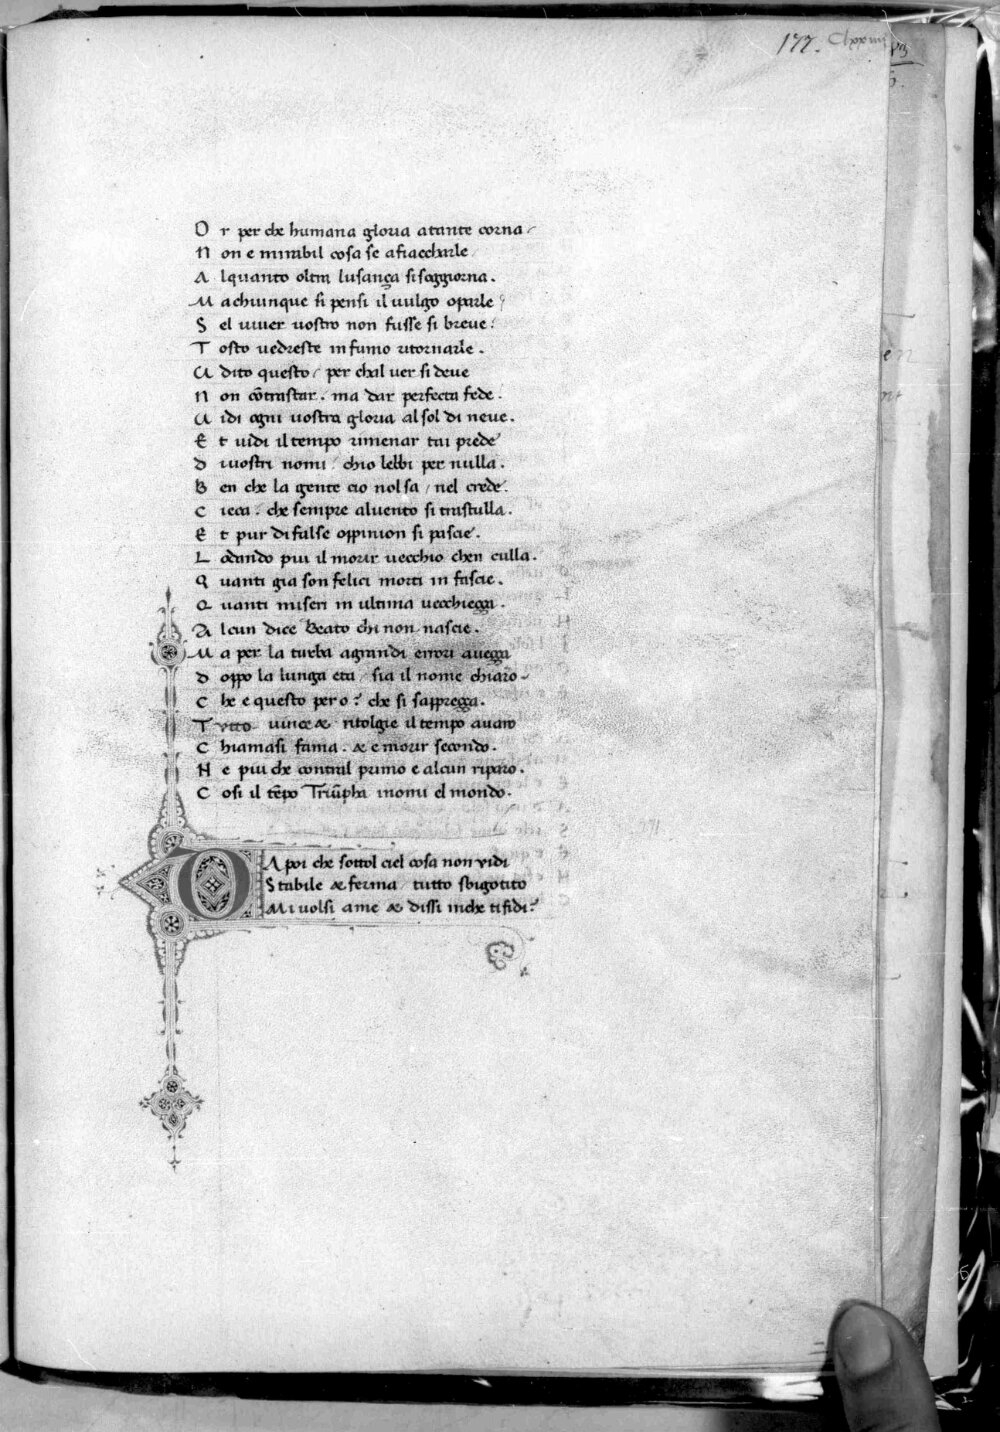 177. Clxxiiii
O r per che humana gloria a tante corna
N on e mirabil cosa se a fiaccharle
A lquanto oltra lusança si soggiorna.
M a chiunque si pensi il vulgo o parle
S el viver vostro non fusse si breve:
T osto vedreste in fumo ritornarle.
U dito questo / per chal ver si deve
N on cōtrastar. ma dar perfecta fede.
U idi ogni vostra gloria al sol di neve.
E t vidi il tempo rimenar tai prede
D ivostri nomi: chio lebbi per nulla.
B en che la gente cio nol sa / nel crede.
C ieca. che sempre al vento si trastulla.
E t pur di false oppinion si pascie.
L odando piu il morir vecchio chen culla.
Q uanti gia son felici morti in fascie.
Q uanti miseri in ultima vecchieçça.
A lcun dice Beato chi non nascie.
M a per la turba a grandi errori aveçça
D oppo la lunga eta / sia il nome chiaro
C he e questo pero? che si s'appreçça.
T vtto vince & ritolgie il tempo avaro
C hiamasi fama. & e morir secondo.
N e piu che contral primo e alcun riparo.
C osi il tēpo Triūpha i nomi el mondo.
D A poi che sottol ciel cosa non vidi
Stabile & ferma / tutto sbigotito
Mi volsi a me & dissi in che ti fidi?